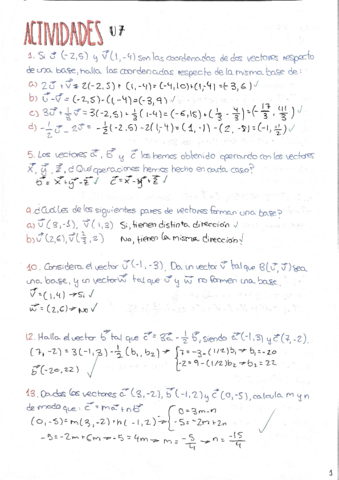 ACTIVIDADES U7
1. Si u⃗ (-2,5) y v⃗ (1,-4) son las coordenadas de dos vectores respecto
de una base, halla las coordenadas respecto de la misma base de:
a) 2u⃗ + v⃗ = 2(-2,5) + (1,-4) = (-4,10) + (1,-4) = (-3,6) ✓
b) u⃗ - v⃗ = (-2,5) - (1,-4) = (-3,9) ✓
c) 3u⃗ + 1/3 v⃗ = 3(-2,5) + 1/3 (1,-4) = (-6,15) + (1/3, -4/3) = (-17/3, 41/3)
d) -1/2 u⃗ - 2v⃗ = -1/2 (-2,5) - 2(1,-4) = (1, ) - (2,-8) = (-1, )
5. Los vectores a⃗, b⃗ y c⃗ los hemos obtenido operando con los vectores
x⃗, y⃗, z⃗. ¿Qué operaciones hemos hecho en cada caso?
b⃗ = x⃗ + y⃗ - z⃗ ✓ c⃗ = x⃗ - y⃗ + z⃗ ✓
9. ¿Cuáles de los siguientes pares de vectores forman una base?
a) u⃗ (3,-1), v⃗ (1,3) Si, tienen distinta dirección ✓
b) u⃗ (2,6), v⃗ (2/3,2) No, tienen la misma dirección ✓
10. Considera el vector u⃗ (-1,-3). Da un vector v⃗ tal que B(u⃗, v⃗) sea
una base, y un vector w⃗ tal que u⃗ y w⃗ no formen una base.
v⃗ = (1,4) → Si ✓
w⃗ = (2,6) → No ✓
12. Halla el vector b⃗ tal que c⃗ = 3a⃗ - 1/2 b⃗, siendo a⃗ (-1,3) y c⃗ (7,-2).
(7,-2) = 3(-1,3) - 1/2 (b₁, b₂) → { 7 = -3 - (1/2) b₁ → b₁ = -20
-2 = 9 - (1/2) b₂ → b₂ = 22
b⃗ (-20,22) ✓
13. Dados los vectores a⃗ (3,-2), b⃗ (-1,2) y c⃗ (0,-5), calcula m y n
de modo que: c⃗ = ma⃗ + nb⃗
(0,-5) = m(3,-2) + n(-1,2) → { 0 = 3m - n
-5 = -2m + 2n
-5 = -2m + 6m → -5 = 4m → m = -5/4 → n = -15/4
1